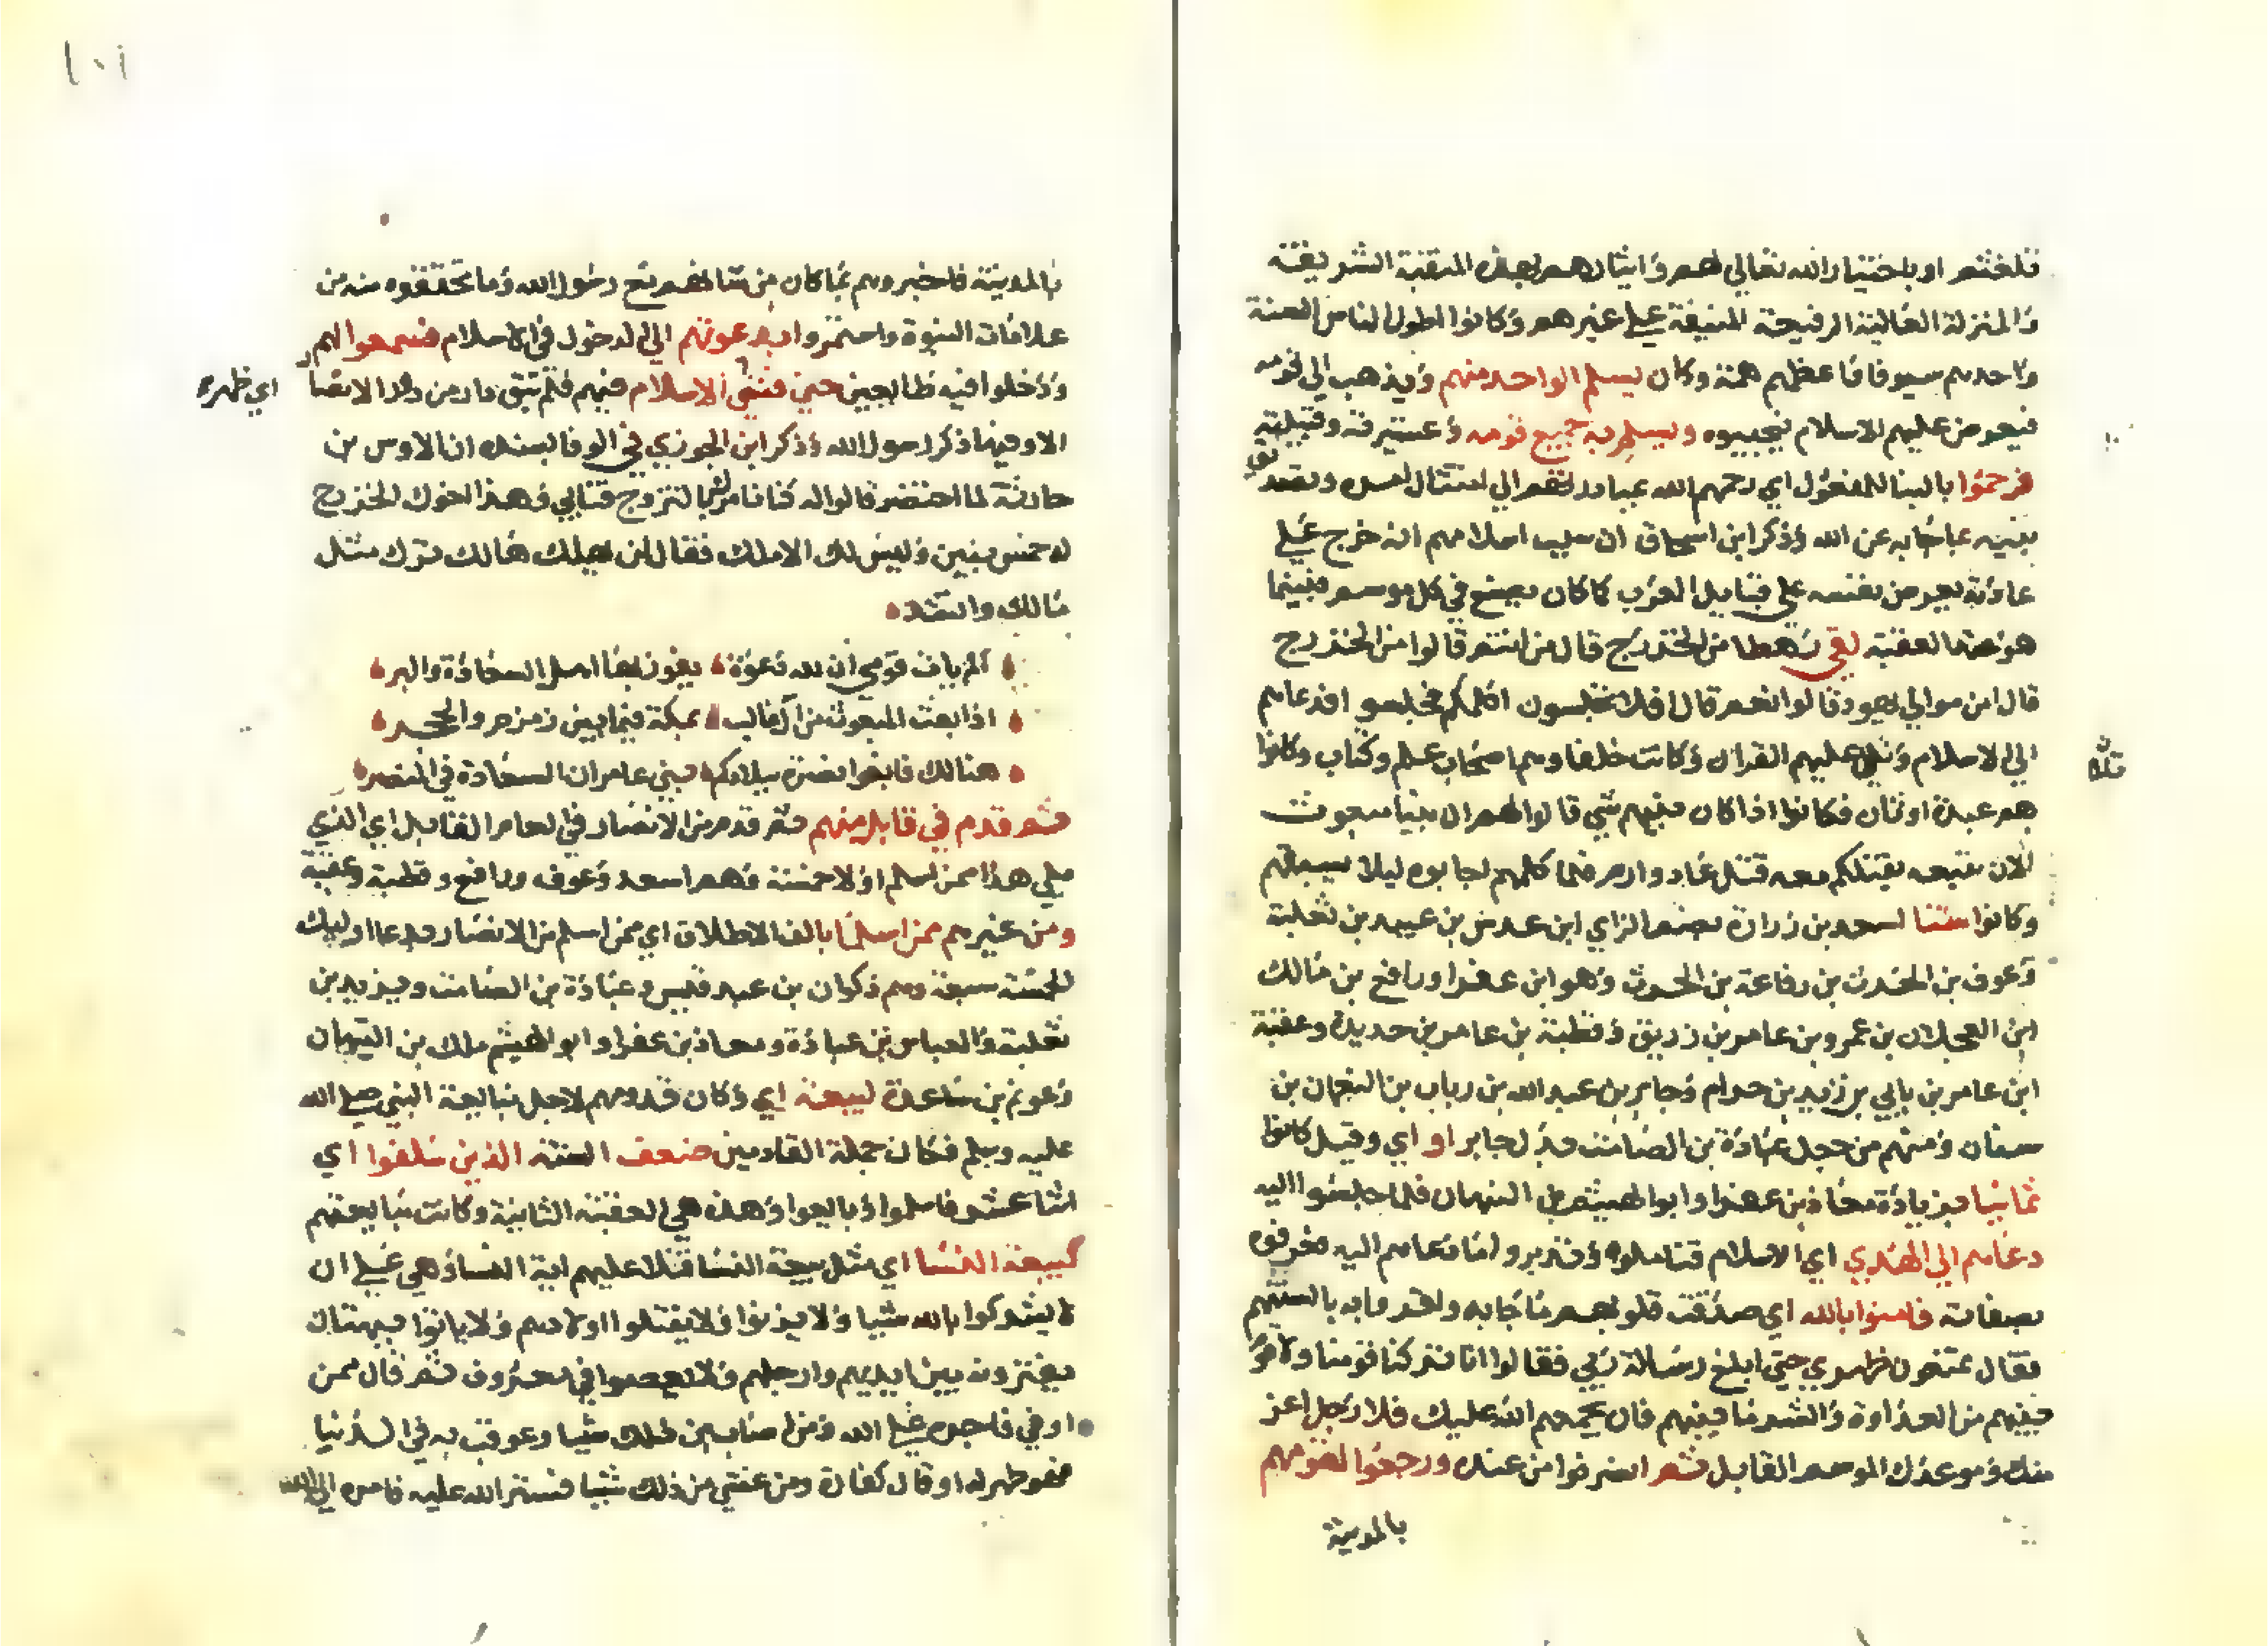 فلغتهم او باختيار الله تعالى لهم وايثارهم بهذه المنقبة الشريفة
والمنزلة العالية الرفيعة المنيفة علي غيرهم وكانوا اطول الناس السنة
واحدهم سيوفا فاعظم همة وكان يسلم الواحد منهم ويذهب الي قومه
فيعرض عليهم الاسلام فيجيبوه ويسلم به جميع قومه وعشيرته وقبيلته
فرحموا بالبنا للمفعول اي رحمهم الله عبادرتهم الي امتثال امره وتصد
نبيه بما جابه عن الله وذكر ابن اسحاق ان سبب اسلامهم انه خرج علي
عادته يعرض نفسه علي قبايل العرب كما كان يصنع في كل موسم فبينما
هو عند العقبة لقي رهطا من الخزرج قال من انتم قالوا من الخزرج
قال امن موالي يهود قالوا نعم قال افلا تجلسون اكلمكم فجلسوا فدعاهم
الي الاسلام وتلي عليهم القران وكانت خلفاوهم اصحاب علم وكتاب وكانوا
هم عبدة اوثان فكانوا اذا كان بينهم شي قالوا لهم ان نبيا مبعوث
الان نتبعه نقتلكم معه قتل عاد وارم فلما كلمهم اجابوه ليلا يسبقهم
وكانوا ستنا اسعد بن زرارة بضم الزاي ابن عدس بن عبيد بن ثعلبة
وعوف بن الحدث بن رفاعة بن الحرث وهو ابن عفرا ورافع بن مالك
ابن العجلان بن عمرو بن عامر بن زريق وقطبة بن عامر بن حديدة وعقبة
ابن عامر بن نابي بن زيد بن حرام وجابر بن عبد الله بن رياب بن النعمان بن
سنان ومنهم من جعل عبادة بن الصامت بدل جابر او اي وقيل كانوا
ثمانيا بزيادة معاذ بن عفرا وابو الهيثم بن التيهان فلما جلسوا اليه
دعاهم الي الهدي اي الاسلام فتاملوه وتدبروا ما دعاهم اليه فعرفوه
بصفاته فامنوا بالله اي صدقت قلوبهم ما جابه واقروا به بالسنتهم
فقال تمنعون ظهري حتي ابلغ رسالة ربي فقالوا انا تركنا قومنا ولا قوم
بينهم من العداوة والشر ما بينهم فان يجمعهم الله عليك فلا رجل اعز
منك وموعدك الموسم القابل ثم انصرفوا من عنده ورجعوا لقومهم
بالمدينة
قتلا
١٠١
بالمدينة فاخبروهم بما كان من شانهم مع رسول الله وما تحققوه منه من
علامات النبوة واستمروا يدعونهم الي الدخول في الاسلام فسمعوا لهم
ودخلوا فيه طايعين حتي فشي الاسلام فيهم فلم تبق دار من دور الانصار
اي ظهر
الا وفيها ذكر رسول الله وذكر ابن الجوزي في الوفا بسنده ان الاوس بن
حارثة لما احتضر قالوا له كنا نامرك بالتزوج فتابي وهذا اخوك الخزرج
له خمس بنين وليس لك الا ملك فقال لن يهلك هالك ترك مثل
مالك وانشد
الم يات قومي ان لله دعوة يفوز بها اهل السعادة والبر
اذا بعث المبعوث من ال غالب بمكة فيما بين زمزم والحجر
هنالك فابغوا نصره ببلادكم بني عامر ان السعادة في النصر
ثم قدم في قابل منهم ثم قدم من الانصار في العام القابل اي الذي
يلي هذا ممن اسلم اولا خمسة وهم اسعد وعوف ورافع وقطبة وعقبة
ومن غيرهم ممن اسلما بالف الاطلاق اي ممن اسلم من الانصار بدعا اوليك
الخمسة سبعة وهم ذكوان بن عبد قيس وعبادة بن الصامت ويزيد بن
ثعلبة والعباس بن عبادة ومعاذ بن عفرا وابو الهيثم ملك بن التيهان
وعويم بن ساعدة لبيعة اي وكان قدومهم لاجل مبايعة النبي صلي الله
عليه وسلم فكان جملة القادمين ضعف الستة الذين سلفوا اي
اثنا عشر فاسلموا وبايعوا وهذه هي العقبة الثانية وكانت مبايعتهم
كبيعة النسا اي مثل بيعة النسا فتلا عليهم اية النسا وهي علي ان
لا يشركوا بالله شيا ولا يزنوا ولا يقتلوا اولادهم ولا ياتوا ببهتان
يفترونه بين ايديهم وارجلهم ولا يعصوا في معروف ثم قال فمن
اوفي فاجره علي الله ومن اصاب من ذلك شيا وعوقب به في الدنيا
فهو طهر له او قال كفارة ومن غشي من ذلك شيا فستر الله عليه فامره الي الله